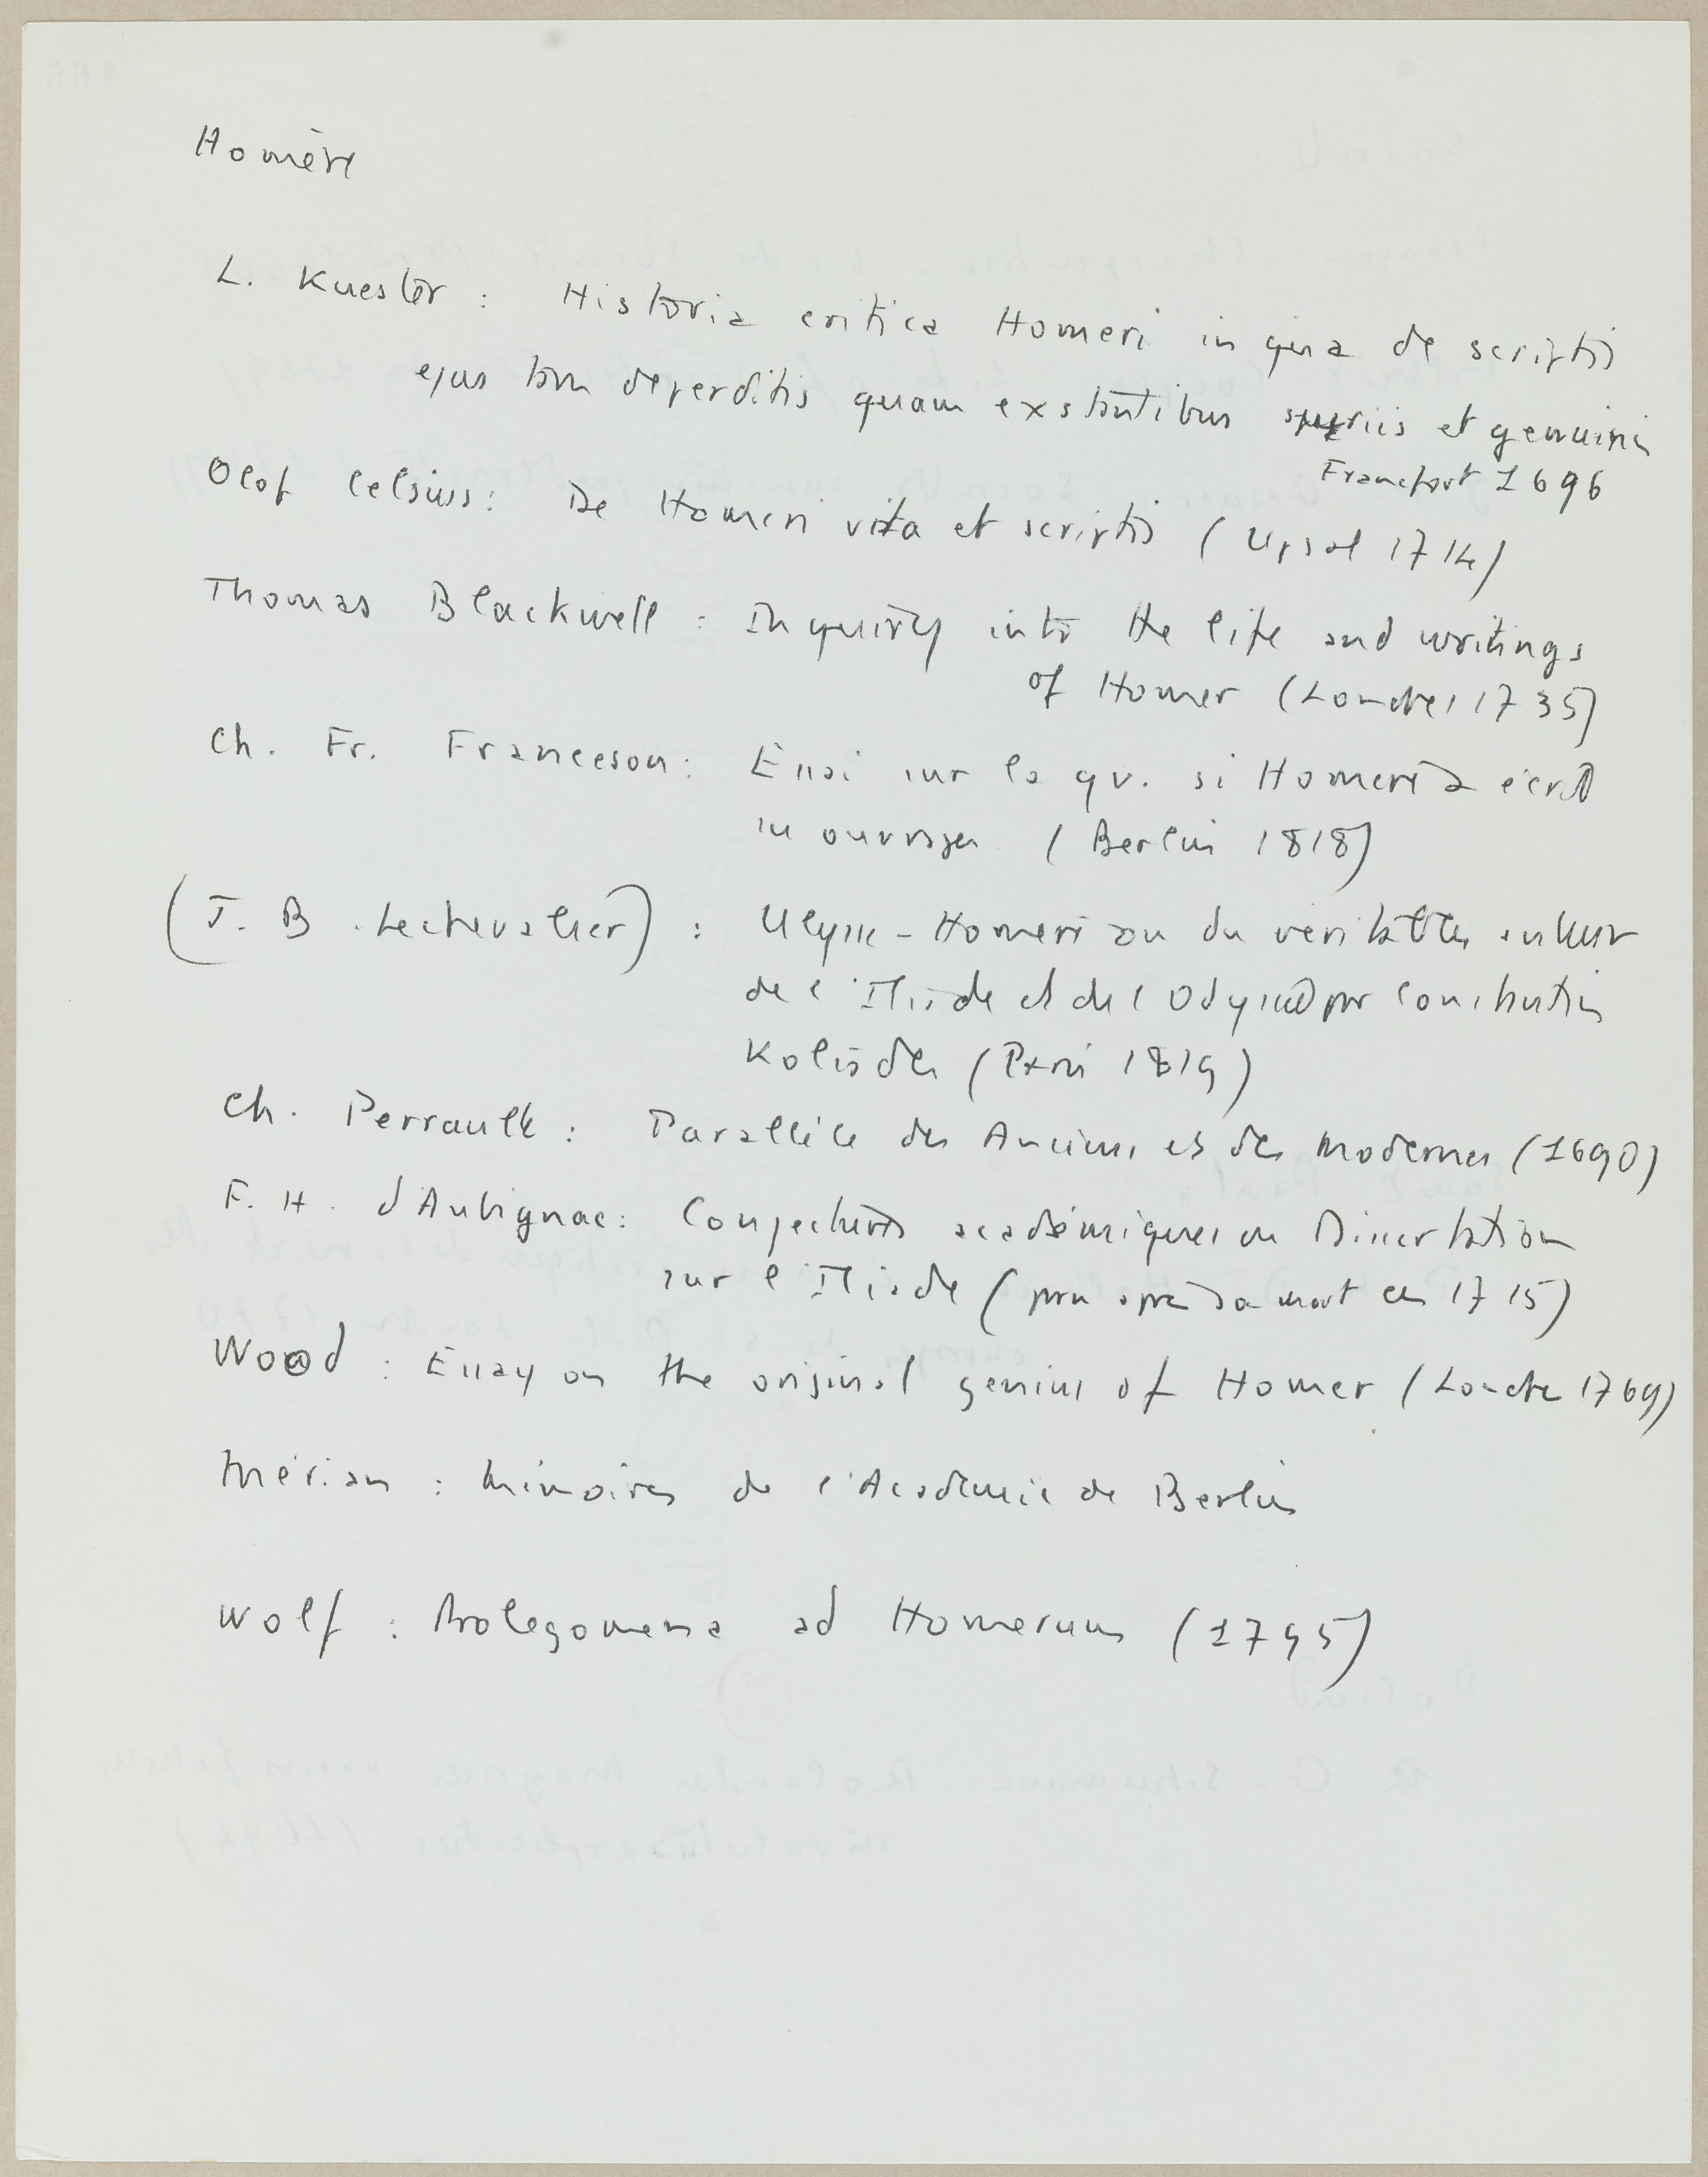 Homère
L. Kuester : Historia critica Homeri in qua de scriptis
ejus tam deperditis quam exstantibus spuriis et genuinis
Francfort 1696
Olof Celsius : De Homeri vita et scriptis (Upsal 1714)
Thomas Blackwell : Inquiry into the life and writings
of Homer (Londres 1735)
Ch. Fr. Franceson : Essai sur la qu. si Homère a écrit
ses ouvrages (Berlin 1818)
(J. B. Lechevalier) : Ulysse-Homère ou du véritable auteur
de l'Iliade et de l'Odyssée par Constantin
Koliades (Paris 1819)
Ch. Perrault : Parallèle des Anciens et des Modernes (1690)
F. H. d'Aubignac : Conjectures académiques ou Dissertation
sur l'Iliade (paru après sa mort en 1715)
Wood : Essay on the original genius of Homer (Londres 1769)
Mérian : Mémoires de l'Académie de Berlin
Wolf : Prolegomena ad Homerum (1795)